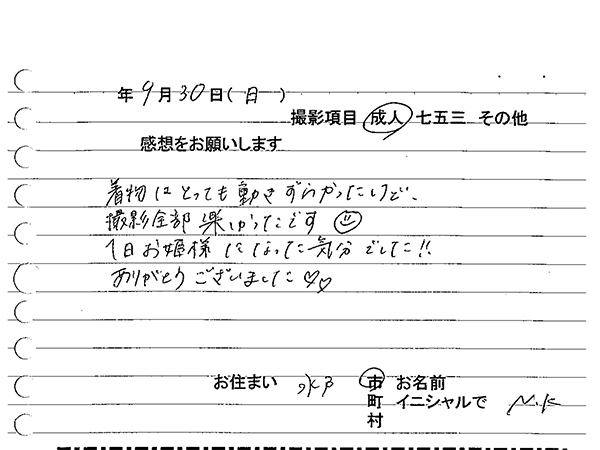 年 9月30日(日)
撮影項目 成人 七五三 その他
感想をお願いします
着物はとっても動きずらかったけど、
撮影全部楽しかったです
1日お姫様になった気分でした!!
ありがとうございました♡♡
お住まい 水戸 市 お名前
町 イニシャルで N.K
村